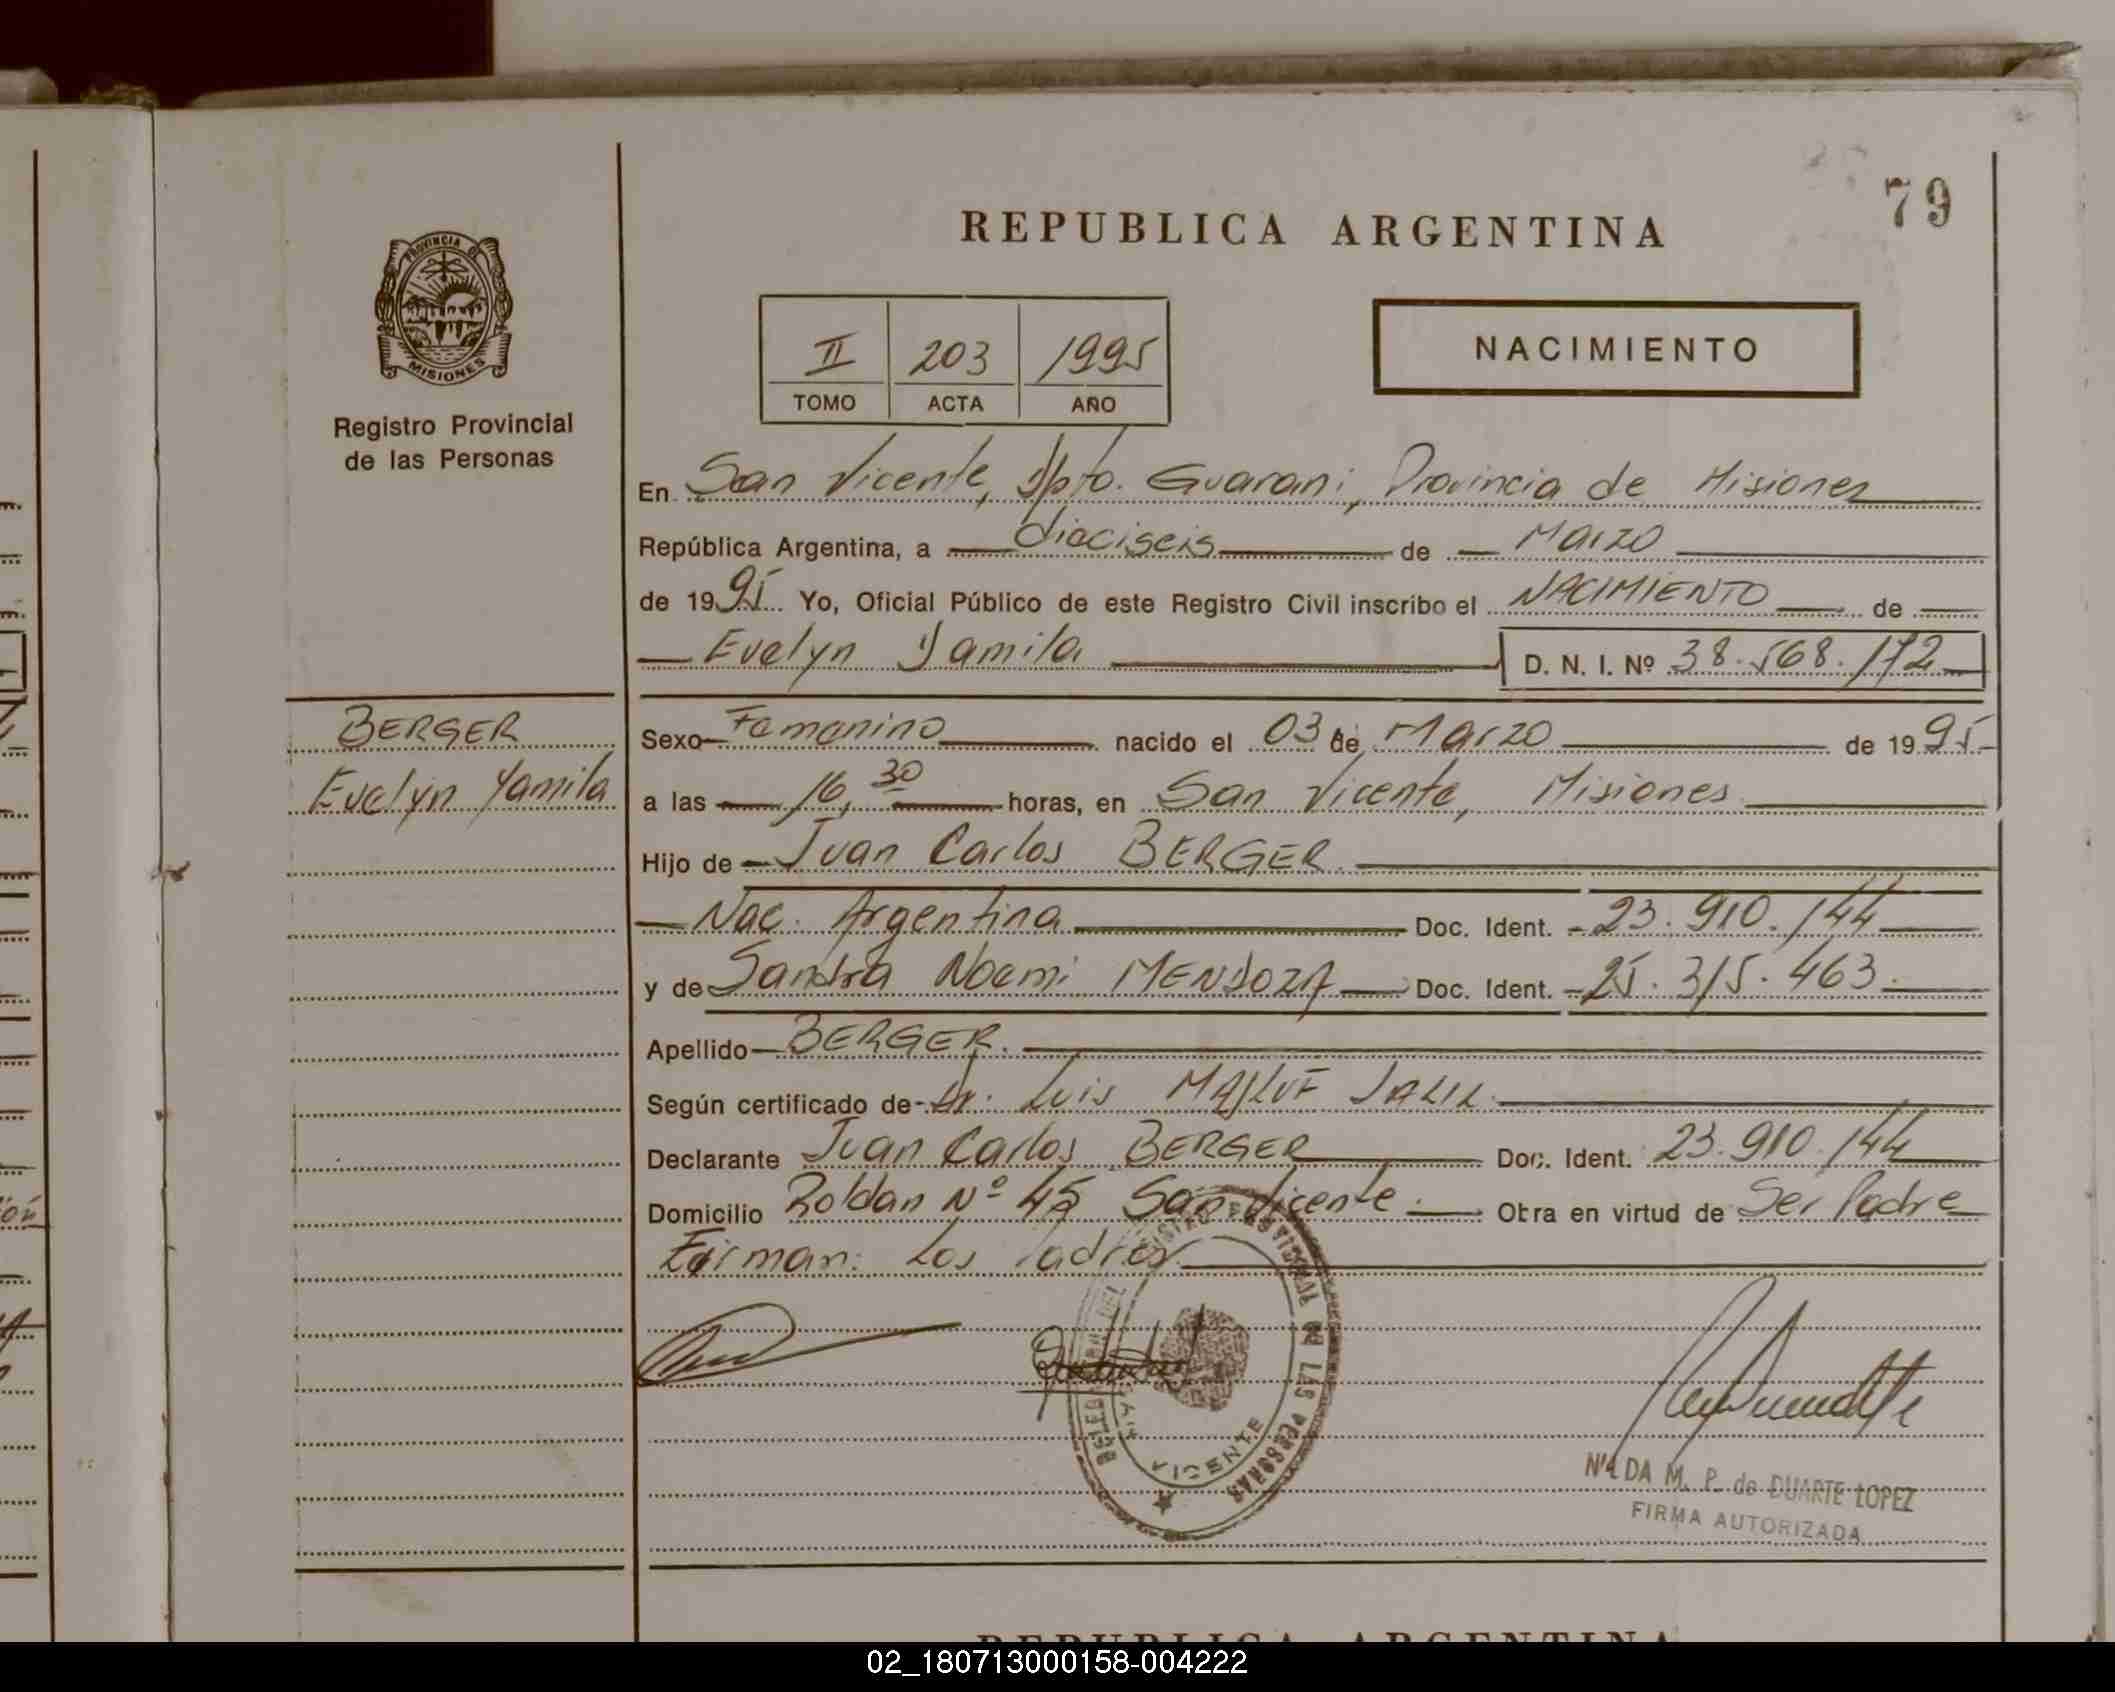 79
REPUBLICA ARGENTINA
PROVINCIA DE
MISIONES
Registro Provincial
de las Personas
II 203 1995
TOMO ACTA AÑO
NACIMIENTO
En San Vicente, Dpto. Guarani, Provincia de Misiones
República Argentina, a dieciseis de Marzo
de 1995 Yo, Oficial Público de este Registro Civil inscribo el NACIMIENTO de
Evelyn Yamila D. N. I. Nº 38.568.172
BERGER
Evelyn Yamila
Sexo Femenino nacido el 03 de Marzo de 1995
a las 16,30 horas, en San Vicente, Misiones
Hijo de Juan Carlos BERGER.
Nac. Argentina Doc. Ident. 23.910.144
y de Sandra Noemi MENDOZA Doc. Ident. 25.315.463.
Apellido BERGER.
Según certificado de Dr. Luis
Declarante Juan Carlos BERGER Doc. Ident. 23.910.144
Domicilio Roldan Nº 45 San Vicente. Obra en virtud de Ser Padre
Firman: Los Padres
REGISTRO PROVINCIAL DE LAS PERSONAS
VICENTE
M. P. de DUARTE LOPEZ
FIRMA AUTORIZADA
REPUBLICA ARGENTINA
02_180713000158-004222